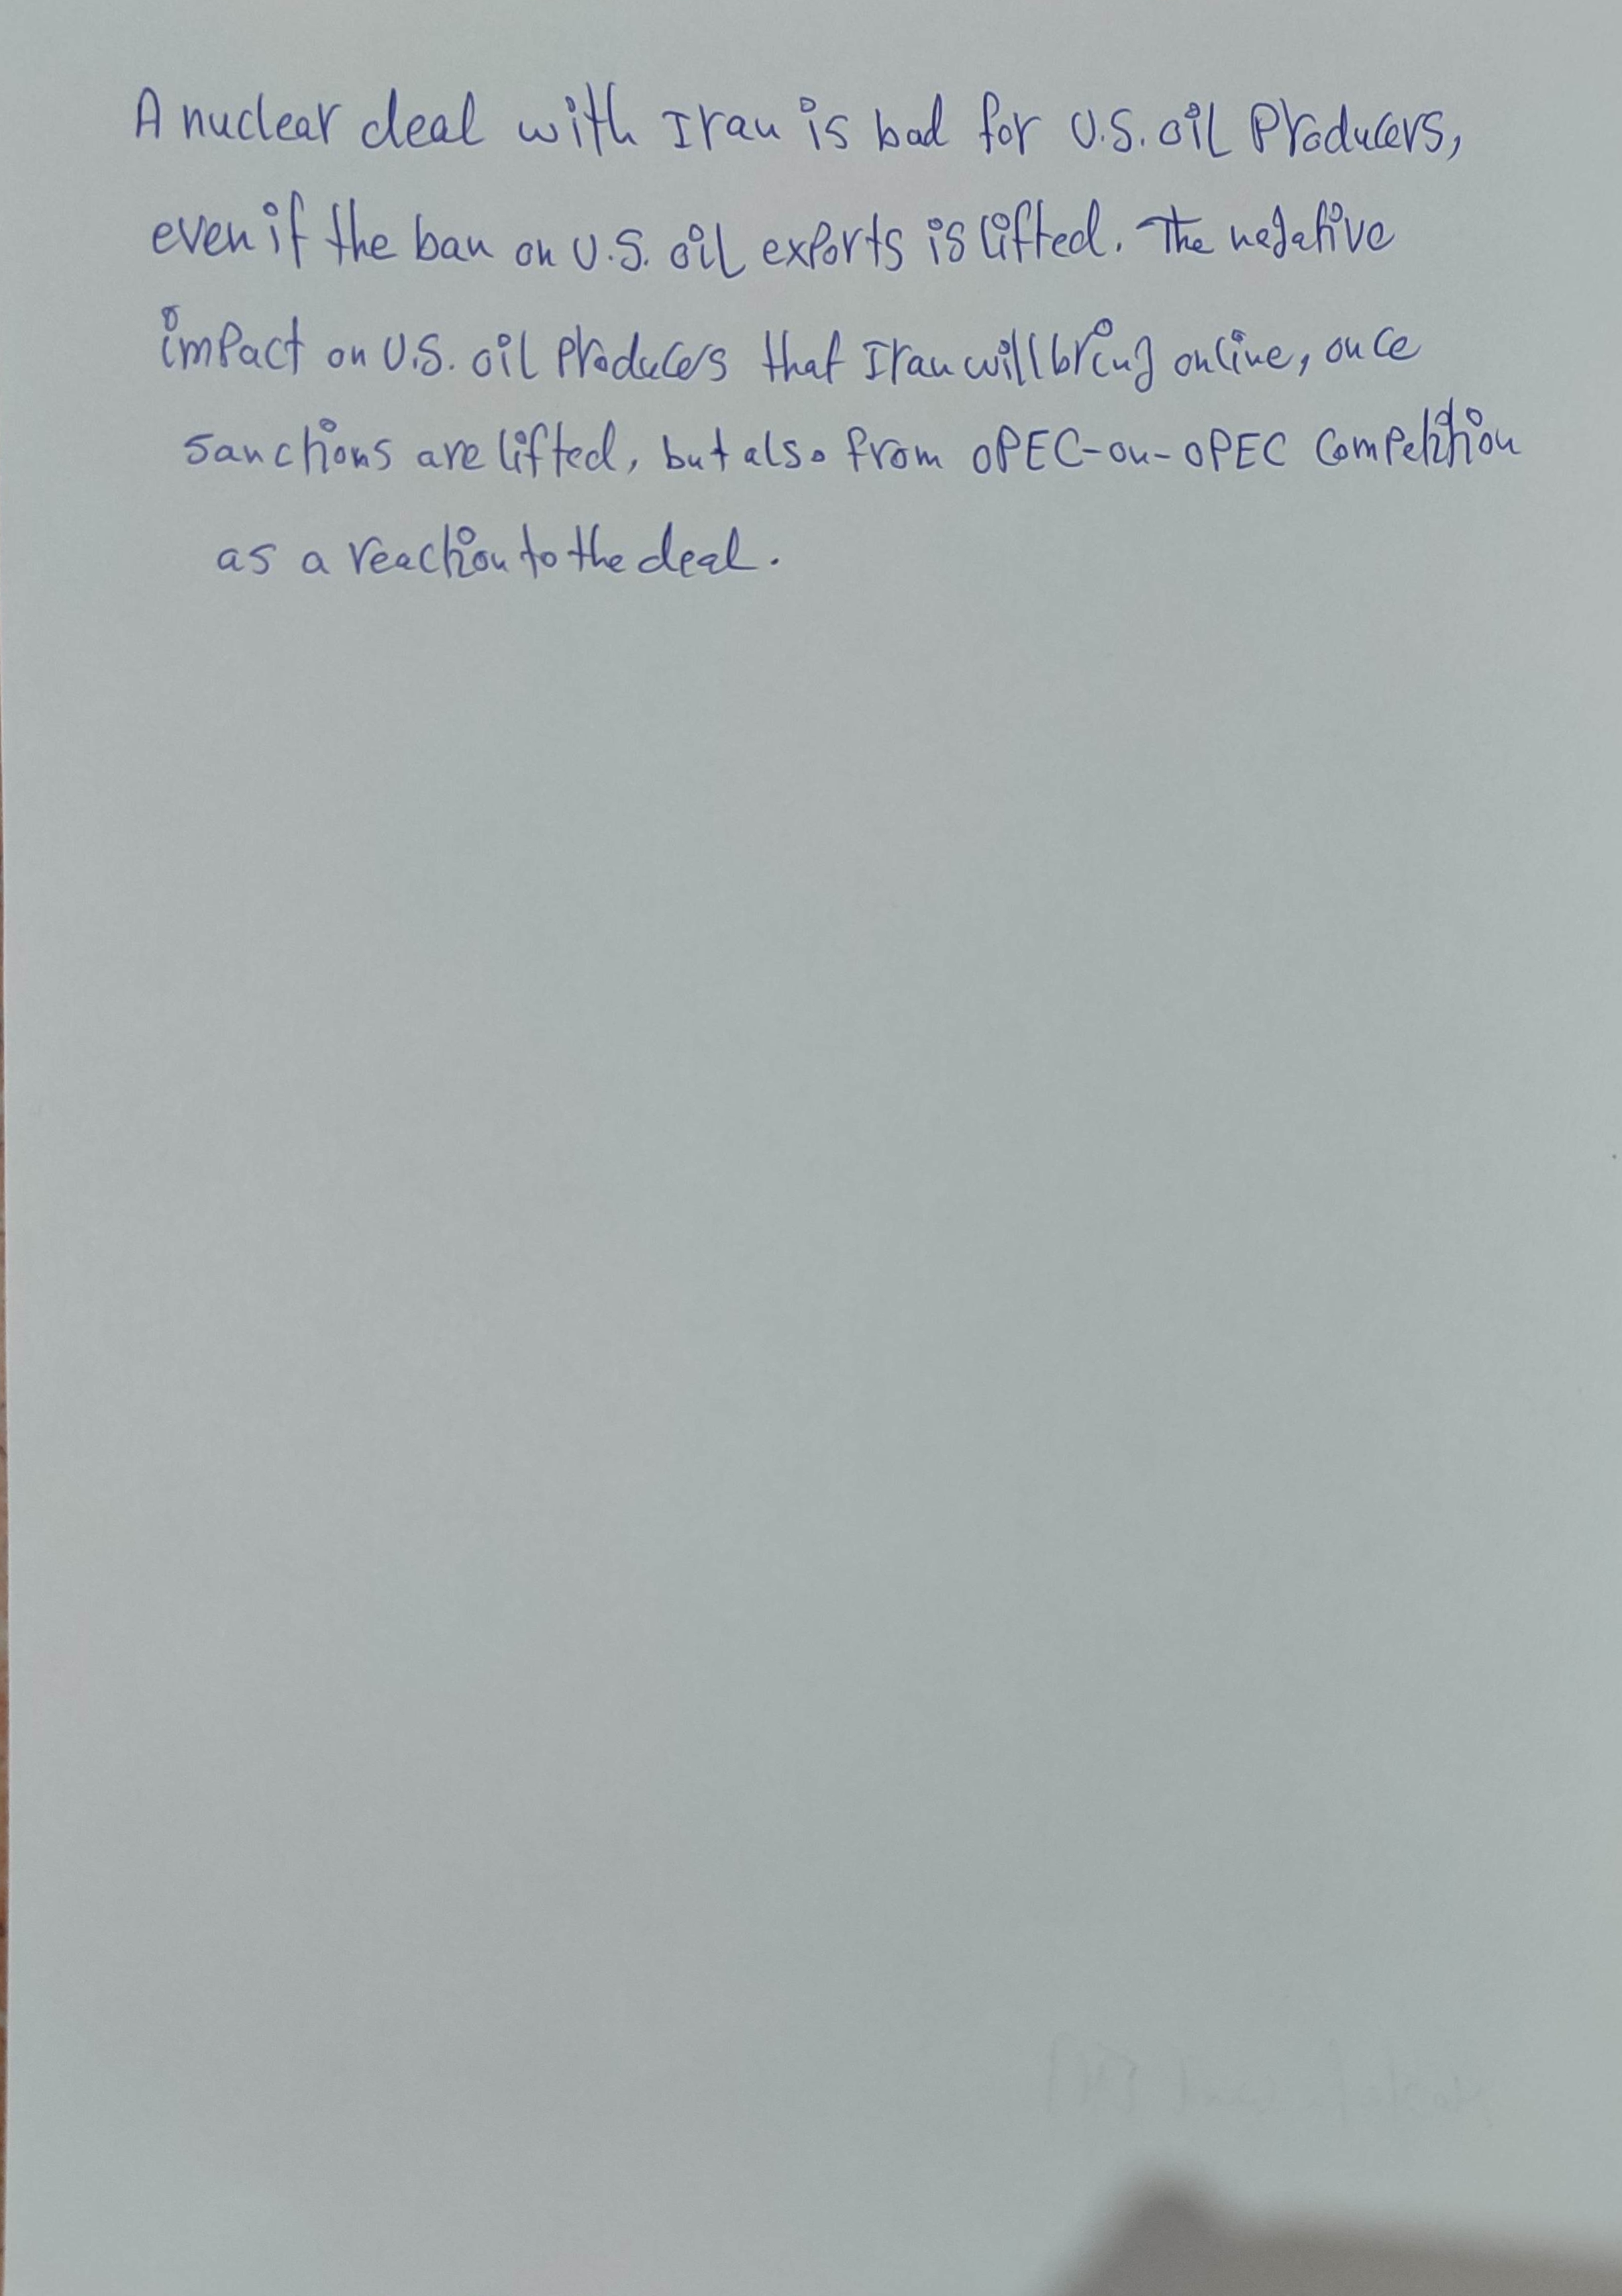 A nuclear deal with Iran is bad for U.S. oil Producers,
even if the ban on U.S. oil exports is lifted. The negative
impact on U.S. oil Producers that Iran will bring online, once
sanctions are lifted, but also from OPEC-on-OPEC Competition
as a reaction to the deal.